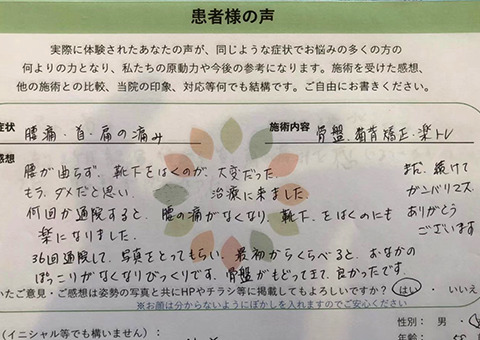 患者様の声
実際に体験されたあなたの声が、同じような症状でお悩みの多くの方の
何よりの力となり、私たちの原動力や今後の参考になります。施術を受けた感想、
他の施術との比較、当院の印象、対応等何でも結構です。ご自由にお書きください。
症状 腰痛・首・肩の痛み 施術内容 骨盤、猫背矯正・楽トレ
感想
腰が曲らず、靴下をはくのが、大変だった。
もう、ダメだと思い、 治療に来ました。
何回か通院すると、腰の痛がなくなり、靴下、をはくのにも
楽になりました。
36回通院して、写真をとってもらい、最初からくらべると、おなかの
ぽっこりがなくなりびっくりです。骨盤がもどってきて、良かったです。
まだ、続けて
ガンバリマス。
ありがとう
ございます
いたご意見・ご感想は姿勢の写真と共にHPやチラシ等に掲載してもよろしいですか? はい ・ いいえ
※お顔は分からないようにぼかしを入れますのでご安心ください
(イニシャル等でも構いません): 性別: 男 ・
年齢: